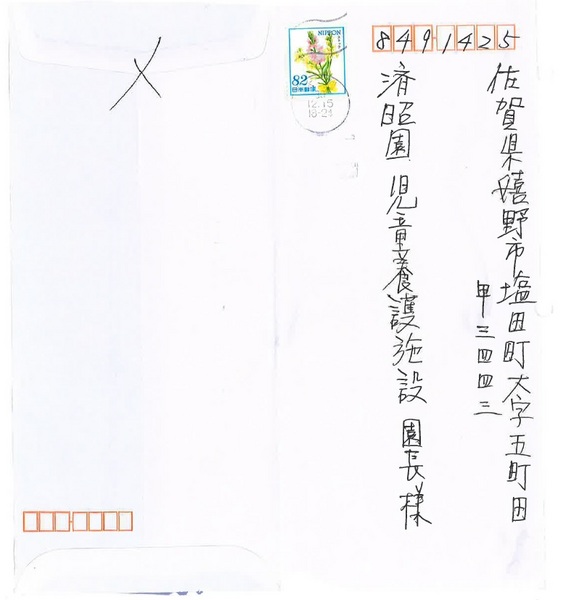 8491425
佐賀県嬉野市塩田町大字五町田
甲三四四三
済昭園 児童養護施設 園長様
NIPPON
82
日本郵便
12.15
18-24
〆